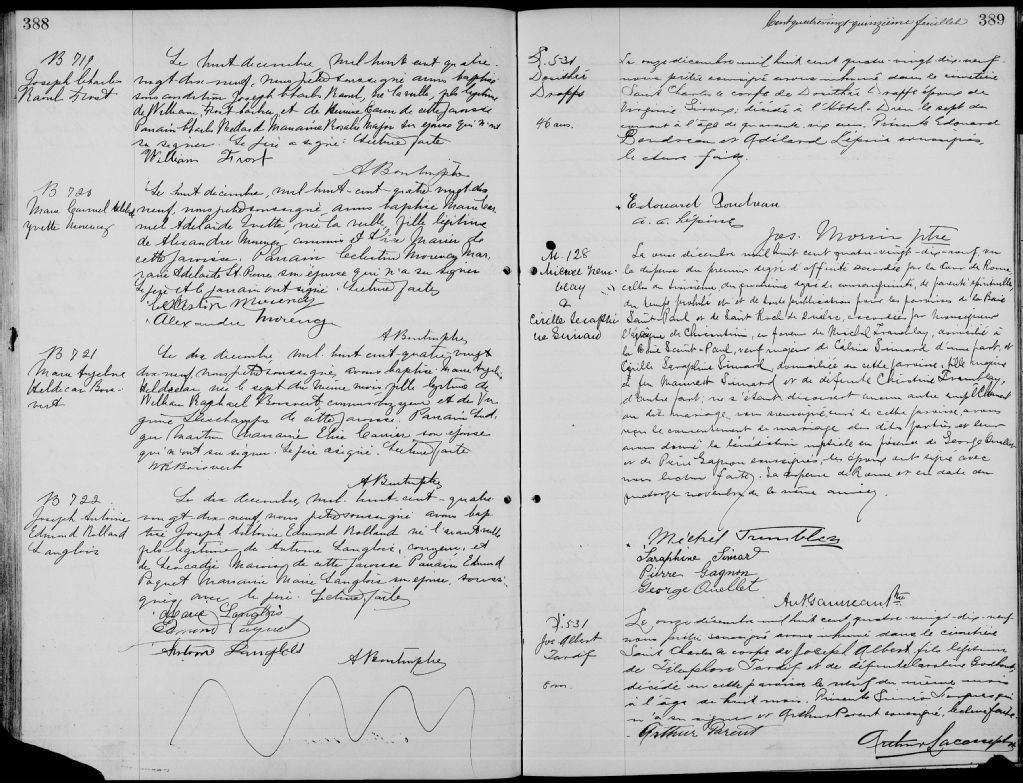 388
B 719
Joseph Charles
Raoul Frost
Le huit décembre, mil huit cent quatre-
vingt-dix-neuf, nous prêtre soussigné avons baptisé
sous condition Joseph Charles Raoul, né la veille, fils légitime
de William Frost et de de cette paroisse
Parrain Charles Marraine Rosalie Major son épouse qui n'ont
su signer. Le père a signé. Lecture faite
William Frost
A Bontrophe
B 720
Marie Carmel Adelaide
Yvette Morency
Le huit décembre, mil huit-cent-quatre vingt dix
neuf, nous prêtre soussigné, avons baptisé Marie Car-
mel Adelaide Yvette, née la veille, fille légitime
de Alexandre Morency commis et de Marier de
cette paroisse. Parrain Celestin Morency Mar-
raine Adelaide St. Pierre son épouse qui n'a su signer
Le père et le parrain ont signé. Lecture faite
Celestin Morency
Alexandre Morency
A Bontrophe
B 721
Marie Angeline
Bois-
vert
Le dix décembre, mil huit-cent-quatre vingt
dix-neuf, nous prêtre soussigné, avons baptisé Marie Angeline
née le sept du même mois fille légitime de
William Raphael Boisvert, commis-voyageur et de Vir-
ginie Deschamps de cette paroisse. Parrain Lud-
ger Martin Marraine Elise Carrier son épouse
qui n'ont su signer. Le père a signé. Lecture faite
WR Boisvert
A Bontrophe
B 722
Joseph Antoine
Edmond Rolland
Langlois
Le dix décembre, mil huit-cent-quatre
vingt-dix-neuf, nous prêtre soussigné avons bap-
tisé Joseph Antoine Edmond Rolland né l'avant-veille
fils légitime de Antoine Langlois, corroyeur, et
de Léocadie de cette paroisse Parrain Edmond
Paquet Marraine Marie Langlois son épouse, soussi-
gnés avec le père. Lecture faite
Langlois
Edmond Paquet
Antoine Langlois
A Bontrophe
Cent quatrevingt-quinzième feuillet
389
S. 531
Dorithé
Drapps
46 ans.
Le onze décembre mil huit cent quatre-vingt-dix-neuf
nous prêtre soussigné avons inhumé dans le cimetière
Saint Charles le corps de Dorithé Drapps épouse de
Virginie Giroux, décédé à l'Hotel-Dieu le sept du
courant à l'âge de quarante-six ans. Présents Edouard
Boudreau et Adélard Lépine soussignés,
lecture faite.
Edouard Boudreau
A. A. Lépine
Jos. Morin ptre
M. 128
Michel Trem-
blay
&
Cérille Seraphi-
ne Simard
Le onze décembre mil huit cent quatre-vingt-dix-neuf, vu
la dispense du premier degré d'affinité accordée par la Cour de Rome,
celle du troisième du quatrième degré de consanguinité, de parenté spirituelle,
du temps prohibé et de toute publication pour les paroisses de la Baie
Saint-Paul et de Saint Roch de Québec, accordées par Monseigneur
l'évêque de Chicoutimi, en faveur de Michel Tremblay, domicilié à
la Baie Saint-Paul, veuf majeur de Simard d'une part, et
Cérille Séraphine Simard, domiciliée en cette paroisse, fille majeure
de feu Simard et de défunte Christine Tremblay,
d'autre part; ne s'étant découvert aucun autre empêchement
au dit mariage, nous soussigné curé de cette paroisse, avons
reçu le consentement de mariage des dites parties et leur
avons donné la bénédiction nuptiale en présence de George Ouellet
et de Pierre Gagnon soussignés, les époux ont signé avec
nous lecture faite. La dispense de Rome est en date du
quatorze novembre de la même année.
Michel Tremblay
Séraphine Simard
Pierre Gagnon
George Ouellet
Ant Gauvreau Ptre
S. 531
Jos Albert
Tardif
8 m.
Le onze décembre mil huit cent quatre-vingt-dix-neuf
nous prêtre soussigné avons inhumé dans le cimetière
Saint Charles le corps de Joseph Albert, fils légitime
de Télesphore Tardif et de défunte Caroline
décédé en cette paroisse le neuf du même mois
à l'âge de huit mois. Présents Siméon qui
n'a su signer et Arthur Parent soussigné, lecture faite.
Arthur Parent
Arthur Lacasse ptre